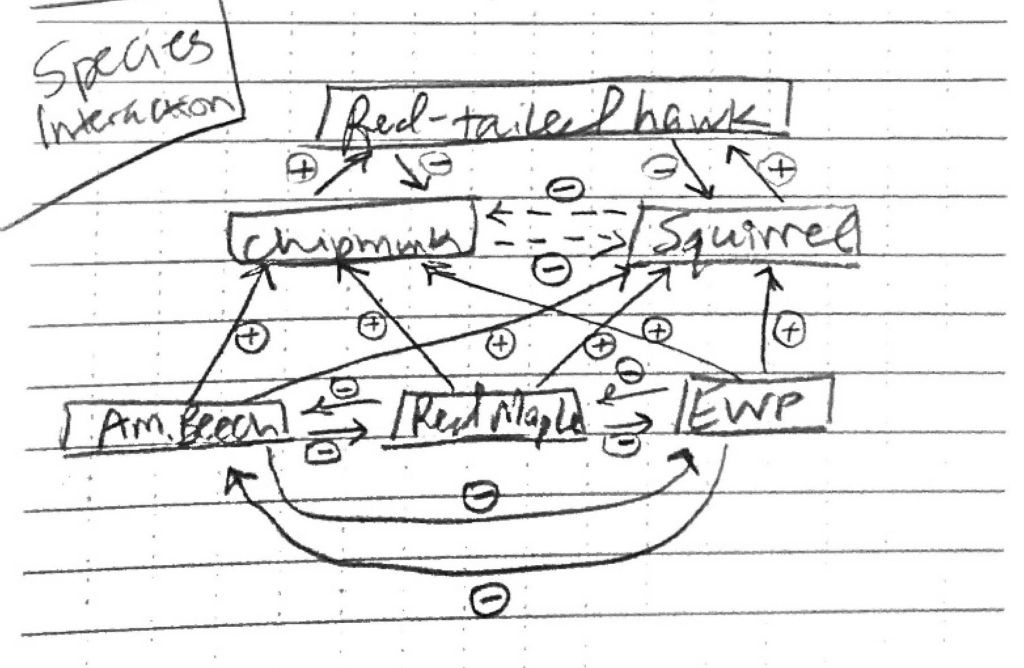 Species
Interaction
Red-tailed hawk
⊕ ⊖ ⊖ ⊕
⊖
chipmunk Squirrel
⊖
⊕ ⊕ ⊕ ⊕ ⊕ ⊕
⊖ ⊖
Am. Beech Red Maple EWP
⊖ ⊖
⊖
⊖